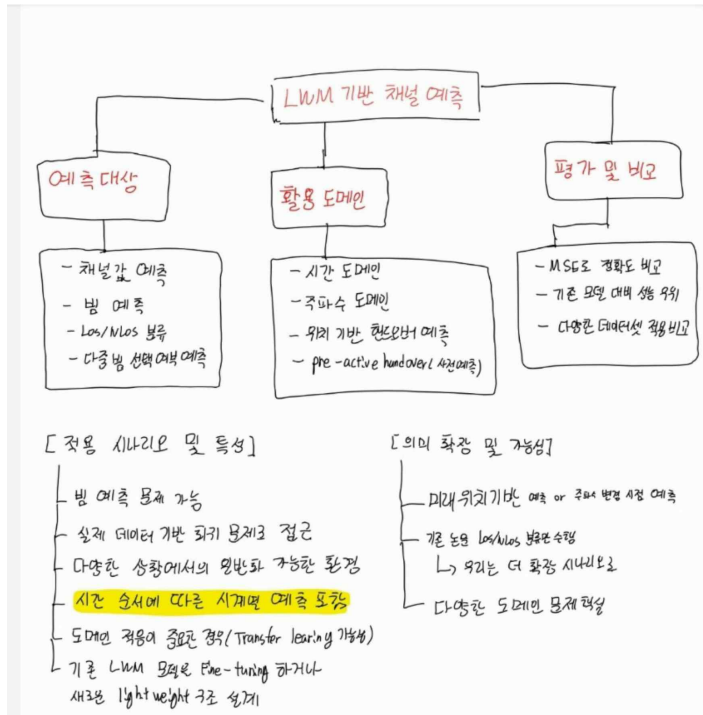 LWM 기반 채널 예측
예측 대상
- 채널값 예측
- 빔 예측
- Los/NLos 분류
- 다중 빔 선택 여부 예측
활용 도메인
- 시간 도메인
- 주파수 도메인
- 위치 기반 핸드오버 예측
- pre-active handover(사전예측)
평가 및 비교
- MSE로 정확도 비교
- 기존 모델 대비 성능 우위
- 다양한 데이터셋 적용 비교
[적용 시나리오 및 특성]
빔 예측 문제 가능
실제 데이터 기반 회귀 문제로 접근
다양한 상황에서의 일반화 가능한 환경
시간 순서에 따른 시계열 예측 포함
도메인 적응이 중요한 경우(Transfer learing 가능성)
기존 LWM 모델을 Fine-tuning 하거나
새로운 lightweight 구조 설계
[의미 확장 및 가능성]
미래 위치기반 예측 or 주파수 변경 시점 예측
기존 논문 Los/NLos 분류만 수행
↳ 우리는 더 확장 시나리오로
다양한 도메인 문제